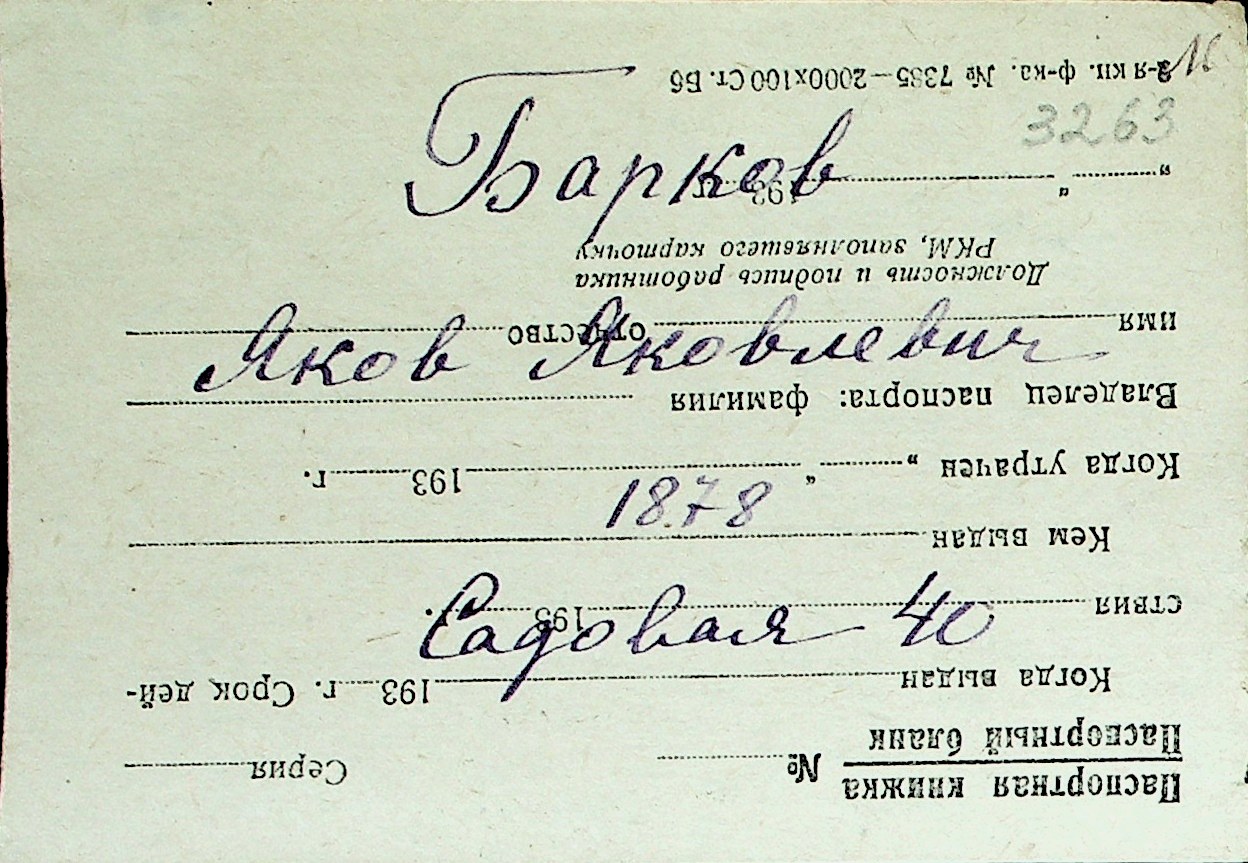 Барков
Яков Яковлевич
1878
Садовая 40
3263
Паспортная книжка
Паспортный бланк № Серия
Когда выдан 193 г. Срок дей-
ствия 193 .
Кем выдан
Когда утрачен „ “ 193 г.
Владелец паспорта: фамилия
имя отчество
Должность и подпись работника
РКМ, заполнявшего карточку
„ “ 193 г.
2-я кп. ф-ка. № 7385—2000х100 Ст. Б6